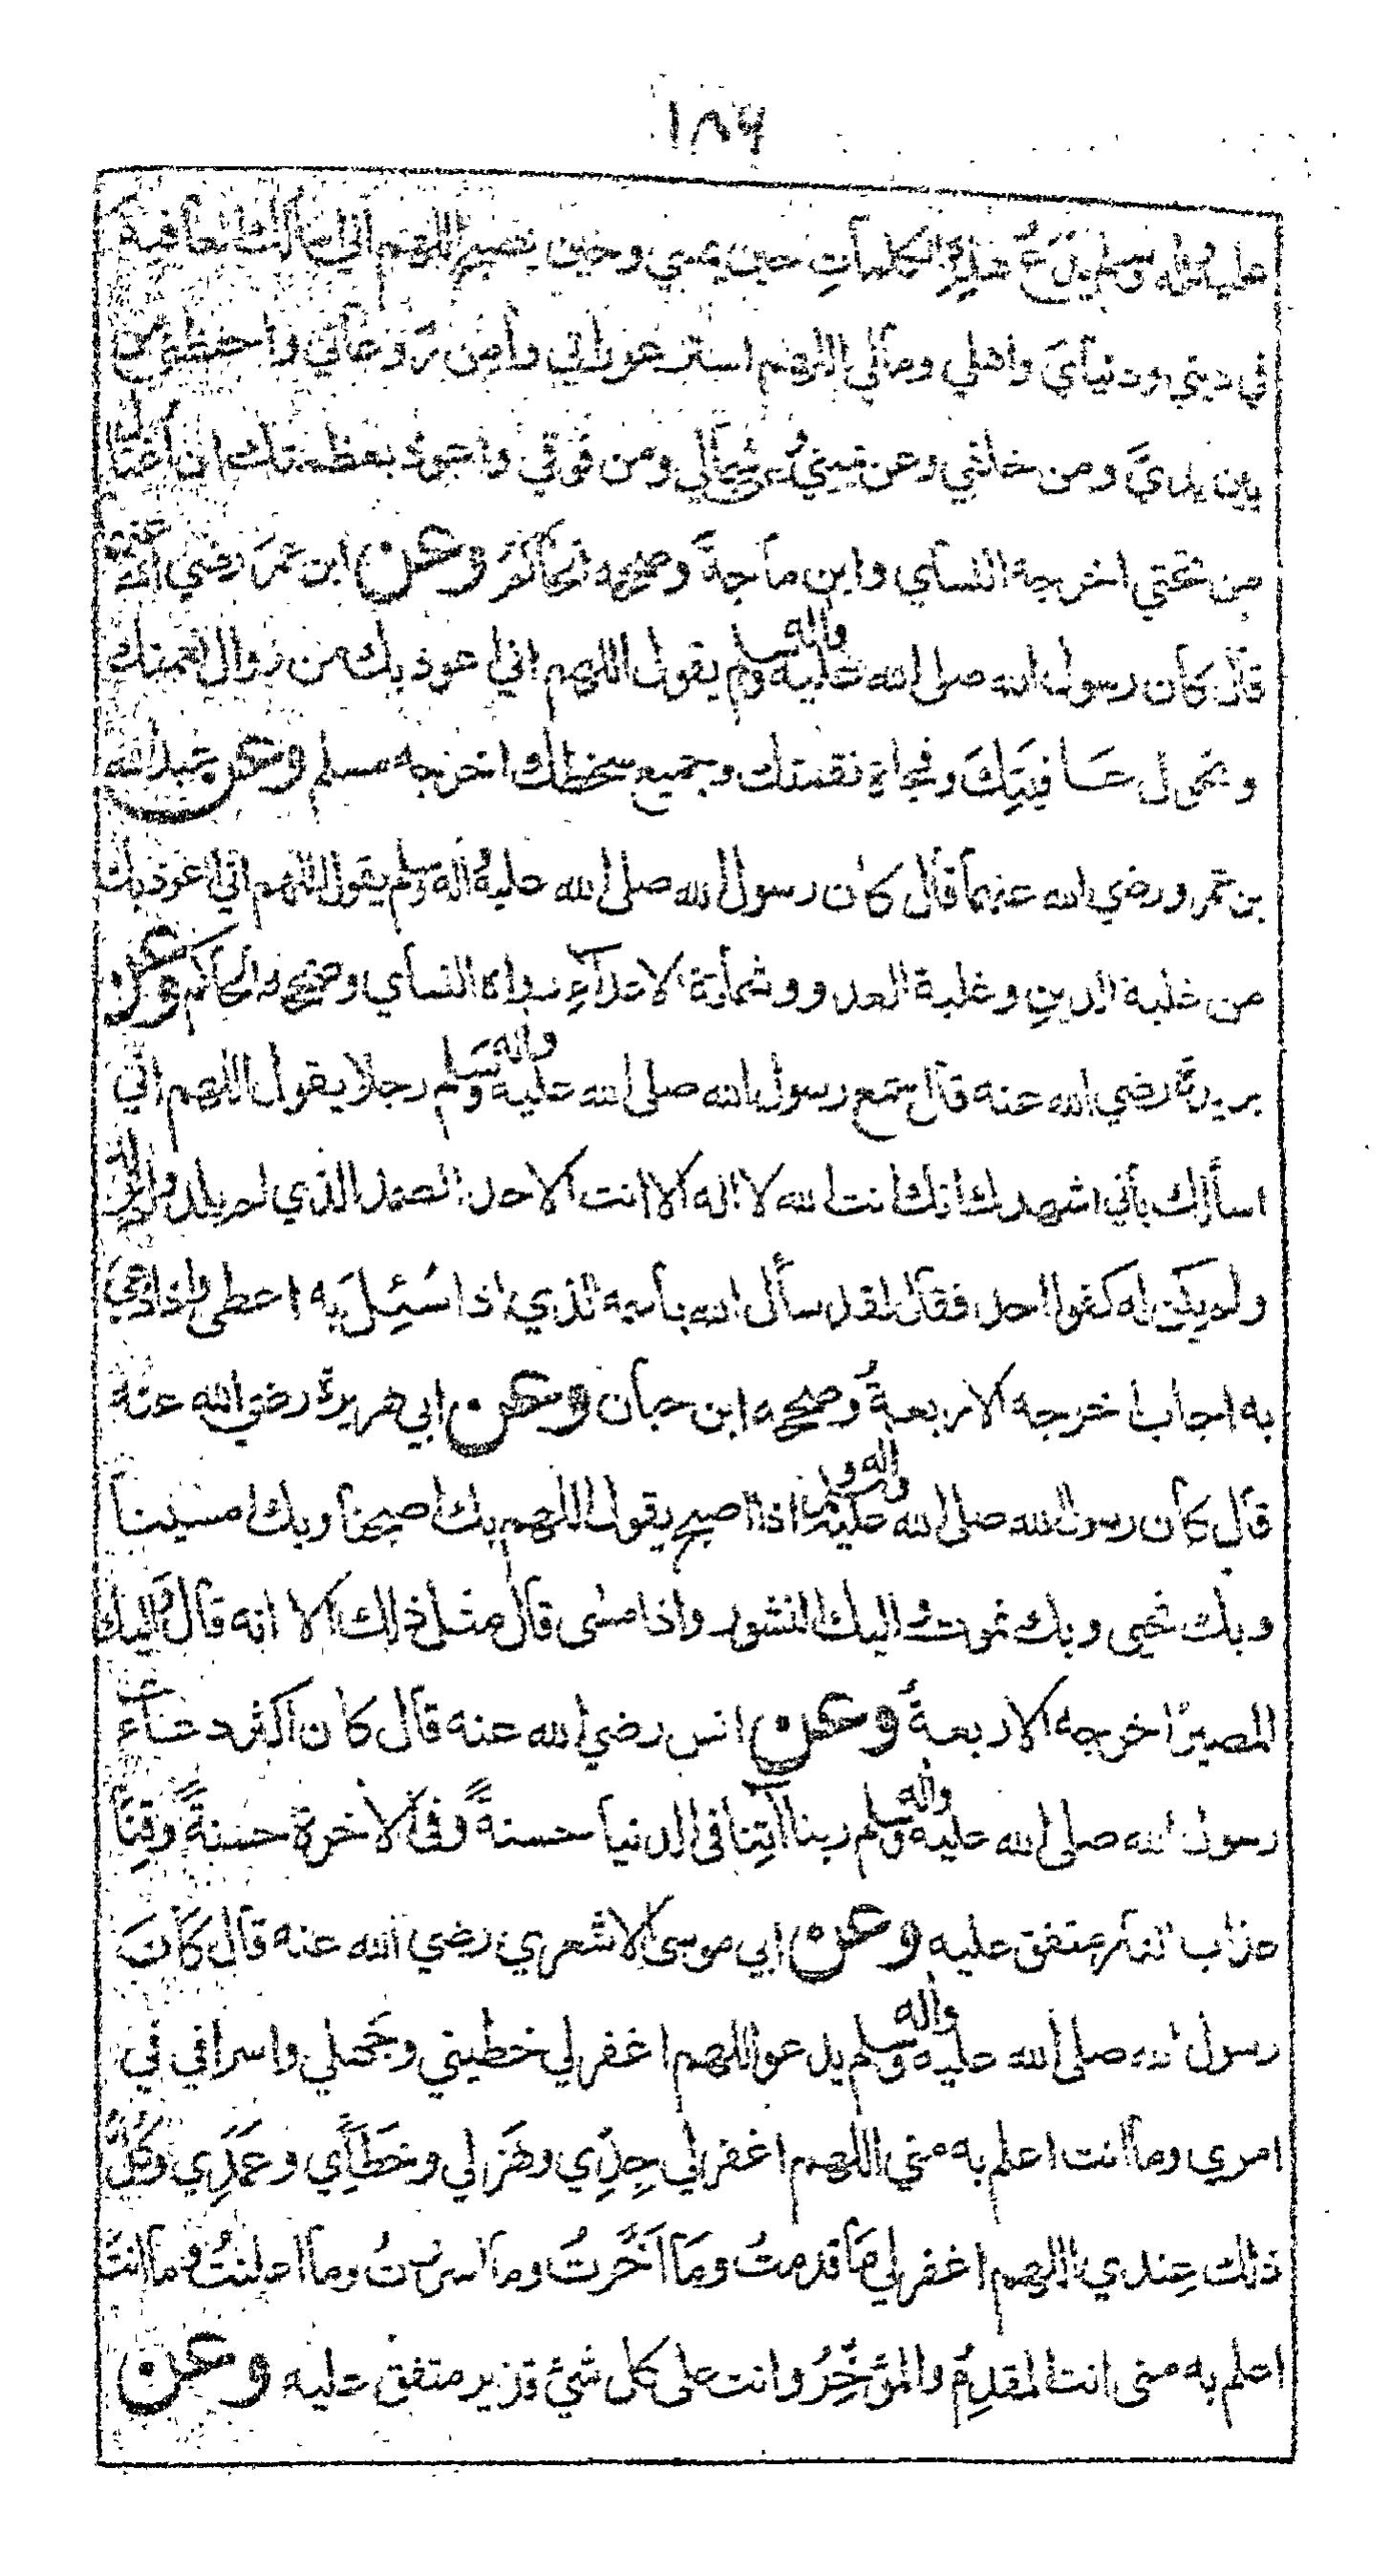 ١٨٦
عليه وآله وسلم يدع هذه الكلمات حين يمسي وحين يصبح اللهم اني اسألك العافية
في ديني ودنياي واهلي ومالي اللهم استر عوراتي وأمن روعاتي واحفظني من
بين يدي ومن خلفي وعن يميني وعن شمالي ومن فوقي واعوذ بعظمتك ان أغتال
من تحتي اخرجه النسآي وابن ماجة وصححه الحاكم وعن ابن عمر رضي الله عنهما
قال كان رسول الله صلى الله عليه وآله وسلم يقول اللهم اني اعوذ بك من زوال نعمتك
وتحول عافيتك وفجاة نقمتك وجميع سخطك اخرجه مسلم وعن عبدالله
بن عمرو رضي الله عنهما قال كان رسول الله صلى الله عليه وآله وسلم يقول اللهم اني اعوذ بك
من غلبة الدين وغلبة العدو وشماتة الاعدآء رواه النسآي وصححه الحاكم وعن
بريدة رضي الله عنه قال سمع رسول الله صلى الله عليه وآله وسلم رجلا يقول اللهم اني
اسألك بأني اشهدك انك انت الله لا اله الا انت الاحد الصمد الذي لم يلد ولم يولد
ولم يكن له كفوا احد فقال لقد سأل الله بأسمه الذي اذا سُئِلَ به اعطى واذا دعي
به اجاب اخرجه الاربعةُ وصححه ابن حبان وعن ابي هريرة رضي الله عنه
قال كان رسول الله صلى الله عليه وآله وسلم اذا اصبح يقول اللهم بك اصبحنا وبك امسينا
وبك نحيى وبك نموت واليك النشور واذا امسى قال مثل ذلك الا انه قال واليك
المصير اخرجه الاربعةُ وعن انس رضي الله عنه قال كان اكثر دعآء
رسول الله صلى الله عليه وآله وسلم ربنا اٰتِنا في الدنيا حسنةً وفي الاخرة حسنةً وقِنا
عذاب النار متفق عليه وعن ابي موسى الاشعري رضي الله عنه قال كانَ
رسول الله صلى الله عليه وآله وسلم يدعو اللهم اغفر لي خطيتي وجَهلي واسرافي في
امري وما انت اعلم به مني اللهم اغفر لي جِدِّي وهَزلي وخَطَأي وعَمَدِي وكُلُّ
ذلك عِندي اللهم اغفر لي مَا قدمتُ ومَا أَخَّرتُ وما اسررتُ وما اعلنتُ وما انتَ
اعلم به منى انت المقدِمُ والمؤخِّرُ وانت على كل شئ قدير متفق عليه وعن